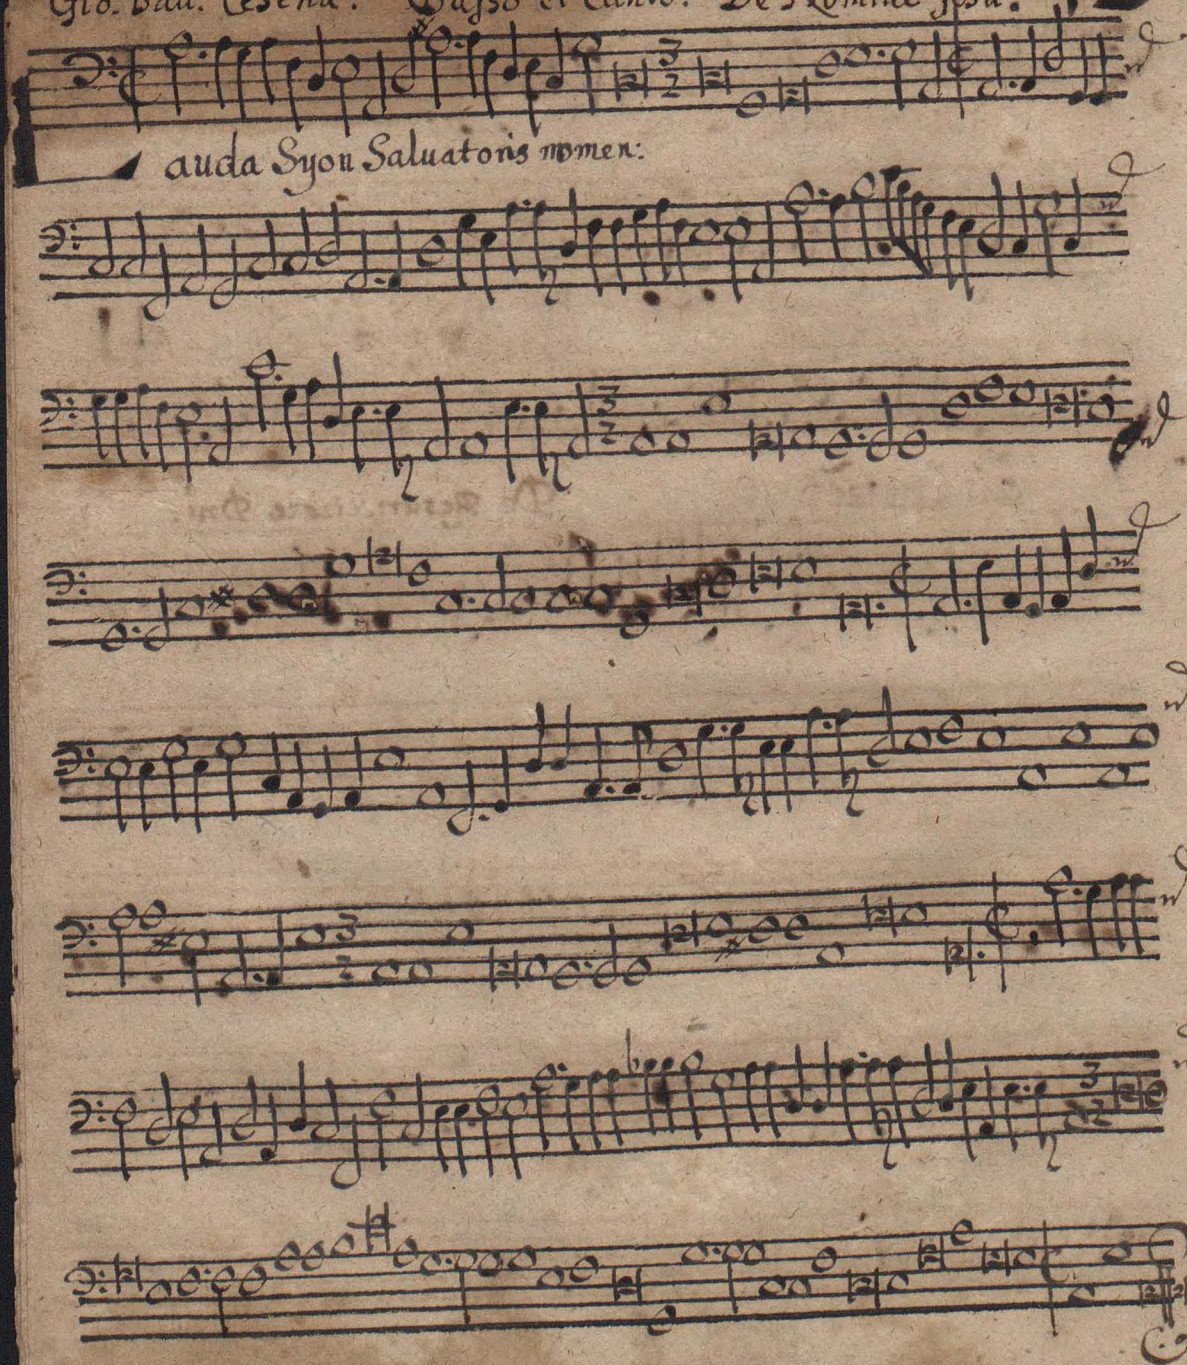 Gio. Bau. Cesena. Basso et Canto. De Nomine Jesu.
Lauda Syon Saluatoris nomen: